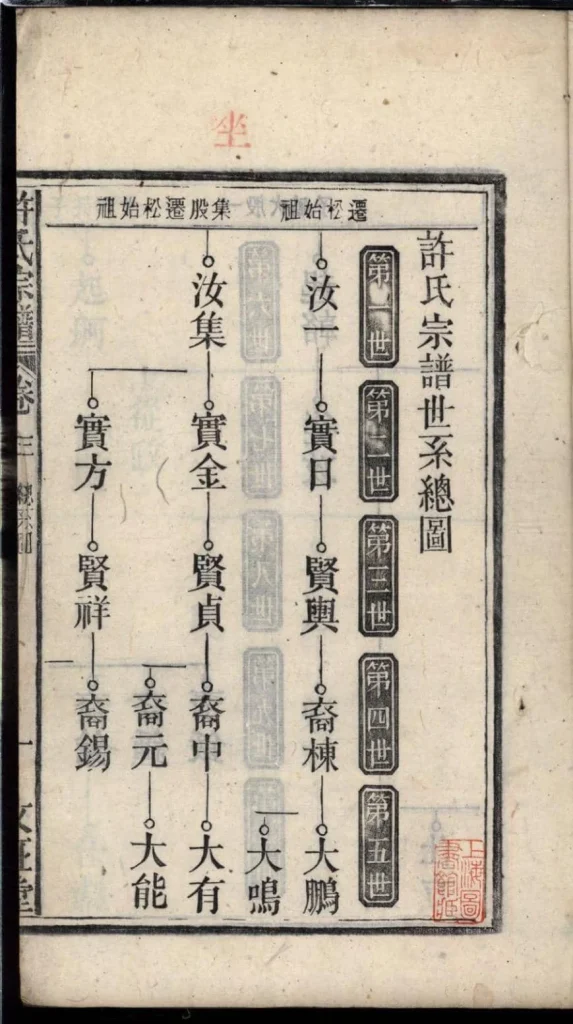 坐
許氏宗譜世系總圖
第一世
第二世
第三世
第四世
第五世
遷松始祖
汝一 實日 賢輿 裔棟 大鵬
大鳴
集股遷松始祖
汝集 實金 賢貞 裔中 大有
裔元 大能
實方 賢祥 裔錫
許氏宗譜 卷三 總系圖 一
上海圖書館藏